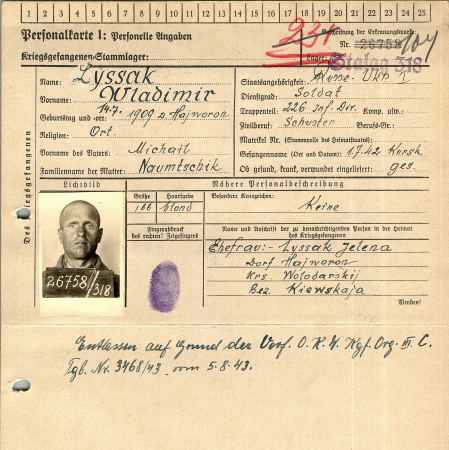 1 2 3 4 5 6 7 8 9 10 11 12 13 14 15 16 17 18 19 20 21 22 23 24 25
Personalkarte I: Personelle Angaben
Kriegsgefangenen-Stammlager:
Beschriftung der Erkennungsmarke
Nr. 26758/104
Lager: Stalag 318
931
Des Kriegsgefangenen
Name: Lyssak
Vorname: Wladimir
Geburtstag und -ort: 14.7. 1909 Hajworon
Religion: Ort.
Vorname des Vaters: Michail
Familienname der Mutter: Naumtschik
Staatsangehörigkeit: Russe-Ukr
Dienstgrad: Soldat
Truppenteil: 226 Inf. Div. Komp. usw.:
Zivilberuf: Schuster Berufs-Gr.:
Matrikel Nr. (Stammrolle des Heimatstaates):
Gefangennahme (Ort und Datum): 1.7.42 Kursk
Ob gesund, krank, verwundet eingeliefert: ges.
Lichtbild
26758/318
Nähere Personalbeschreibung
Größe Haarfarbe
166 blond
Besondere Kennzeichen:
Keine
Fingerabdruck
des rechten! Zeigefingers
Name und Anschrift der zu benachrichtigenden Person in der Heimat
des Kriegsgefangenen
Ehefrau:- Lyssak Jelena
Dorf Hajworon
Krs. Wolodarskij
Bez. Kiewskaja
Wenden!
Entlassen auf Grund der Verf. O.K.W. Kgf. Org. III C.
Tgb. Nr. 3468/43 vom 5.8.43.